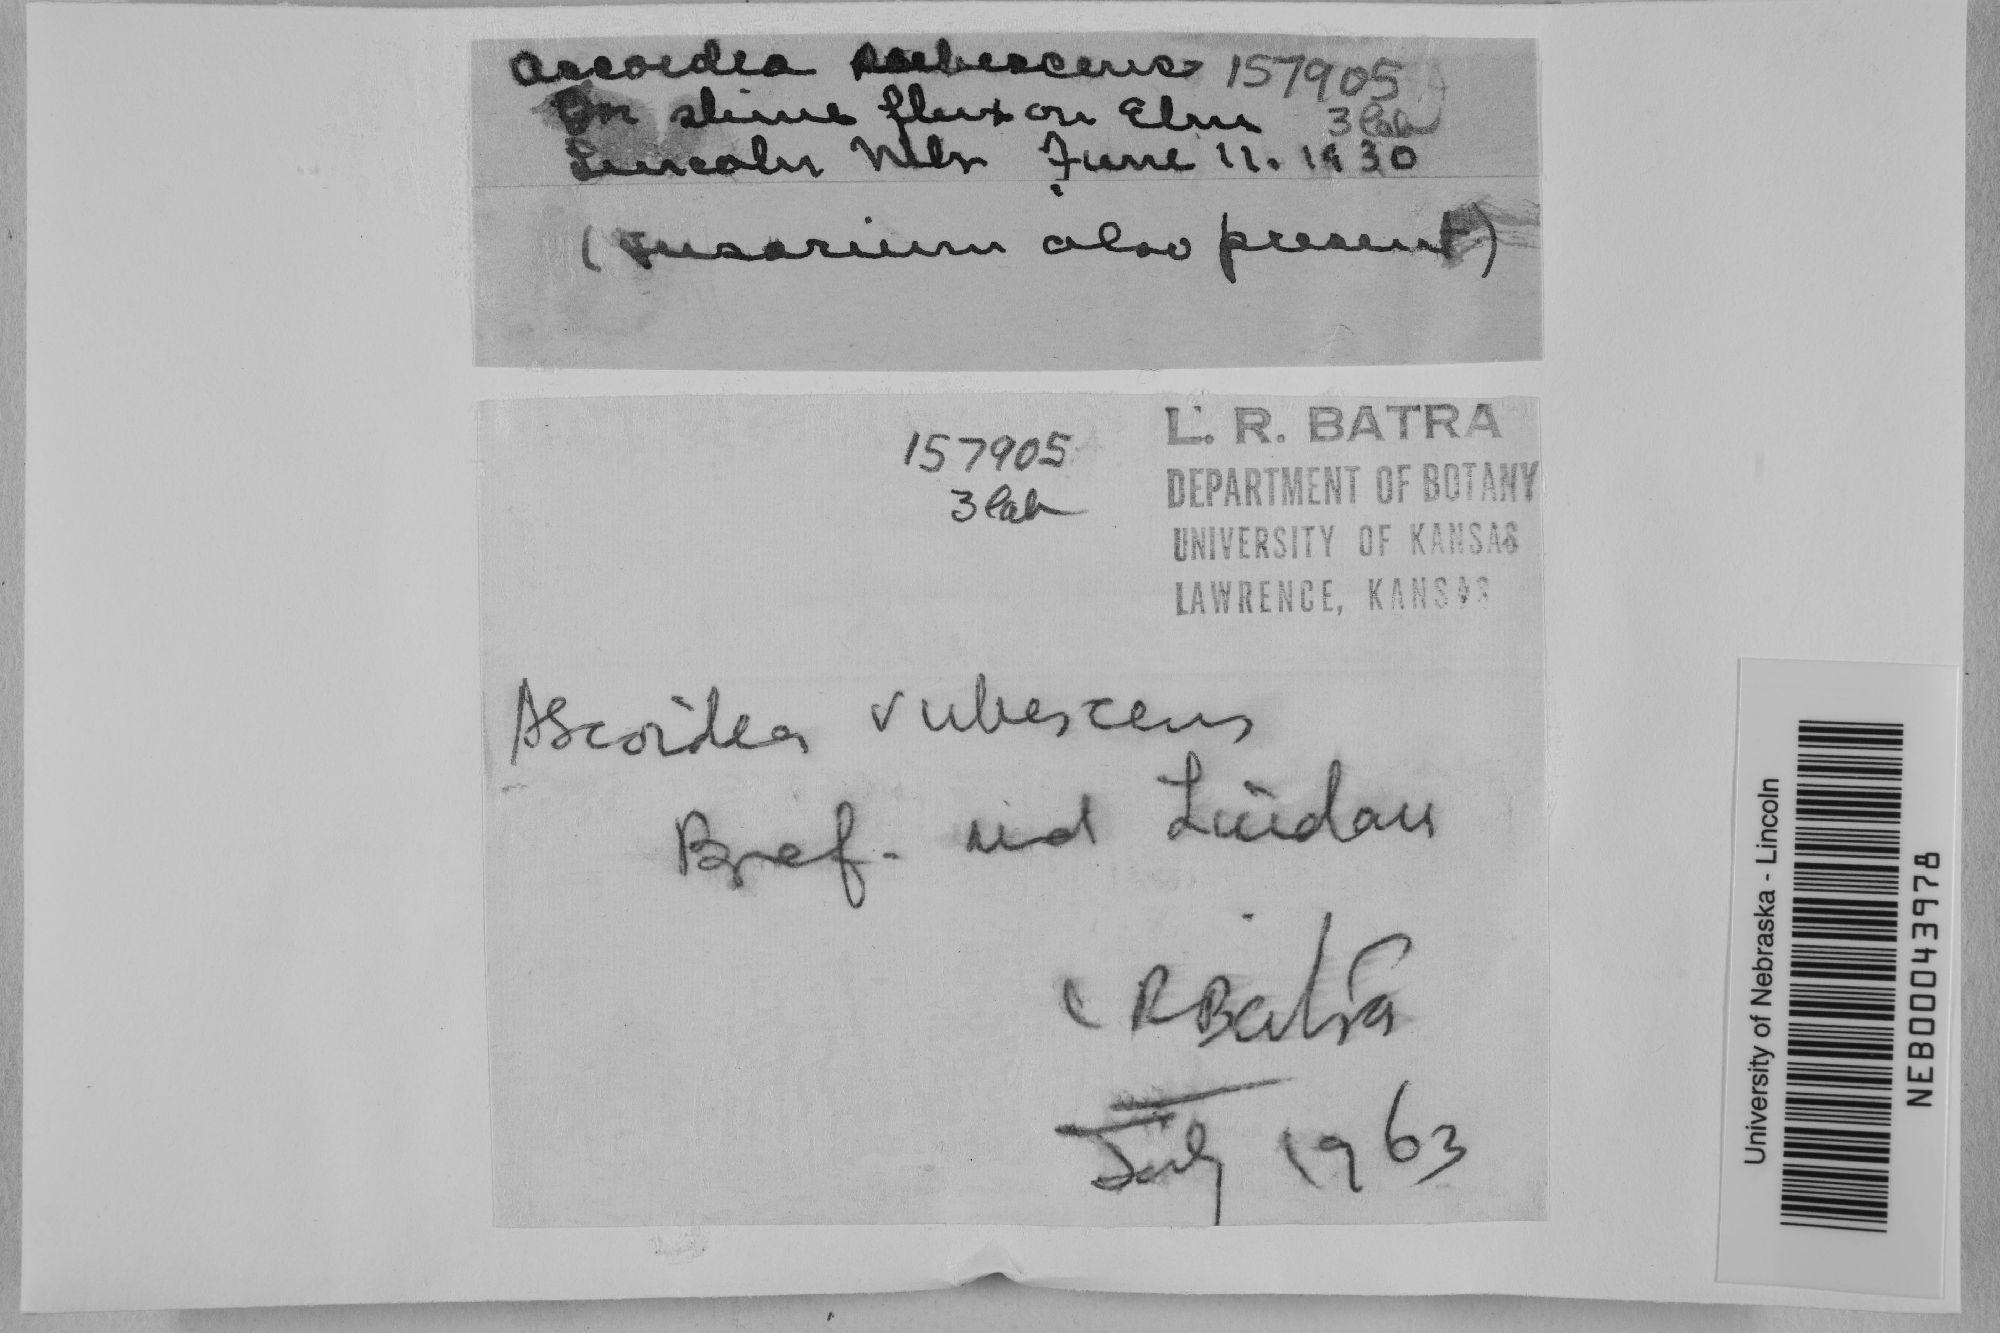 Ascoidea rubescens 157905
On slime flux on Elm 3 lab
Lincoln Nebr June 11. 1930
(Fusarium also present)
157905
3 lab
L. R. BATRA
DEPARTMENT OF BOTANY
UNIVERSITY OF KANSAS
LAWRENCE, KANSAS
Ascoidea rubescens
Bref. und Lindau
L R Batra
July 1963
University of Nebraska - Lincoln
NEB00043978